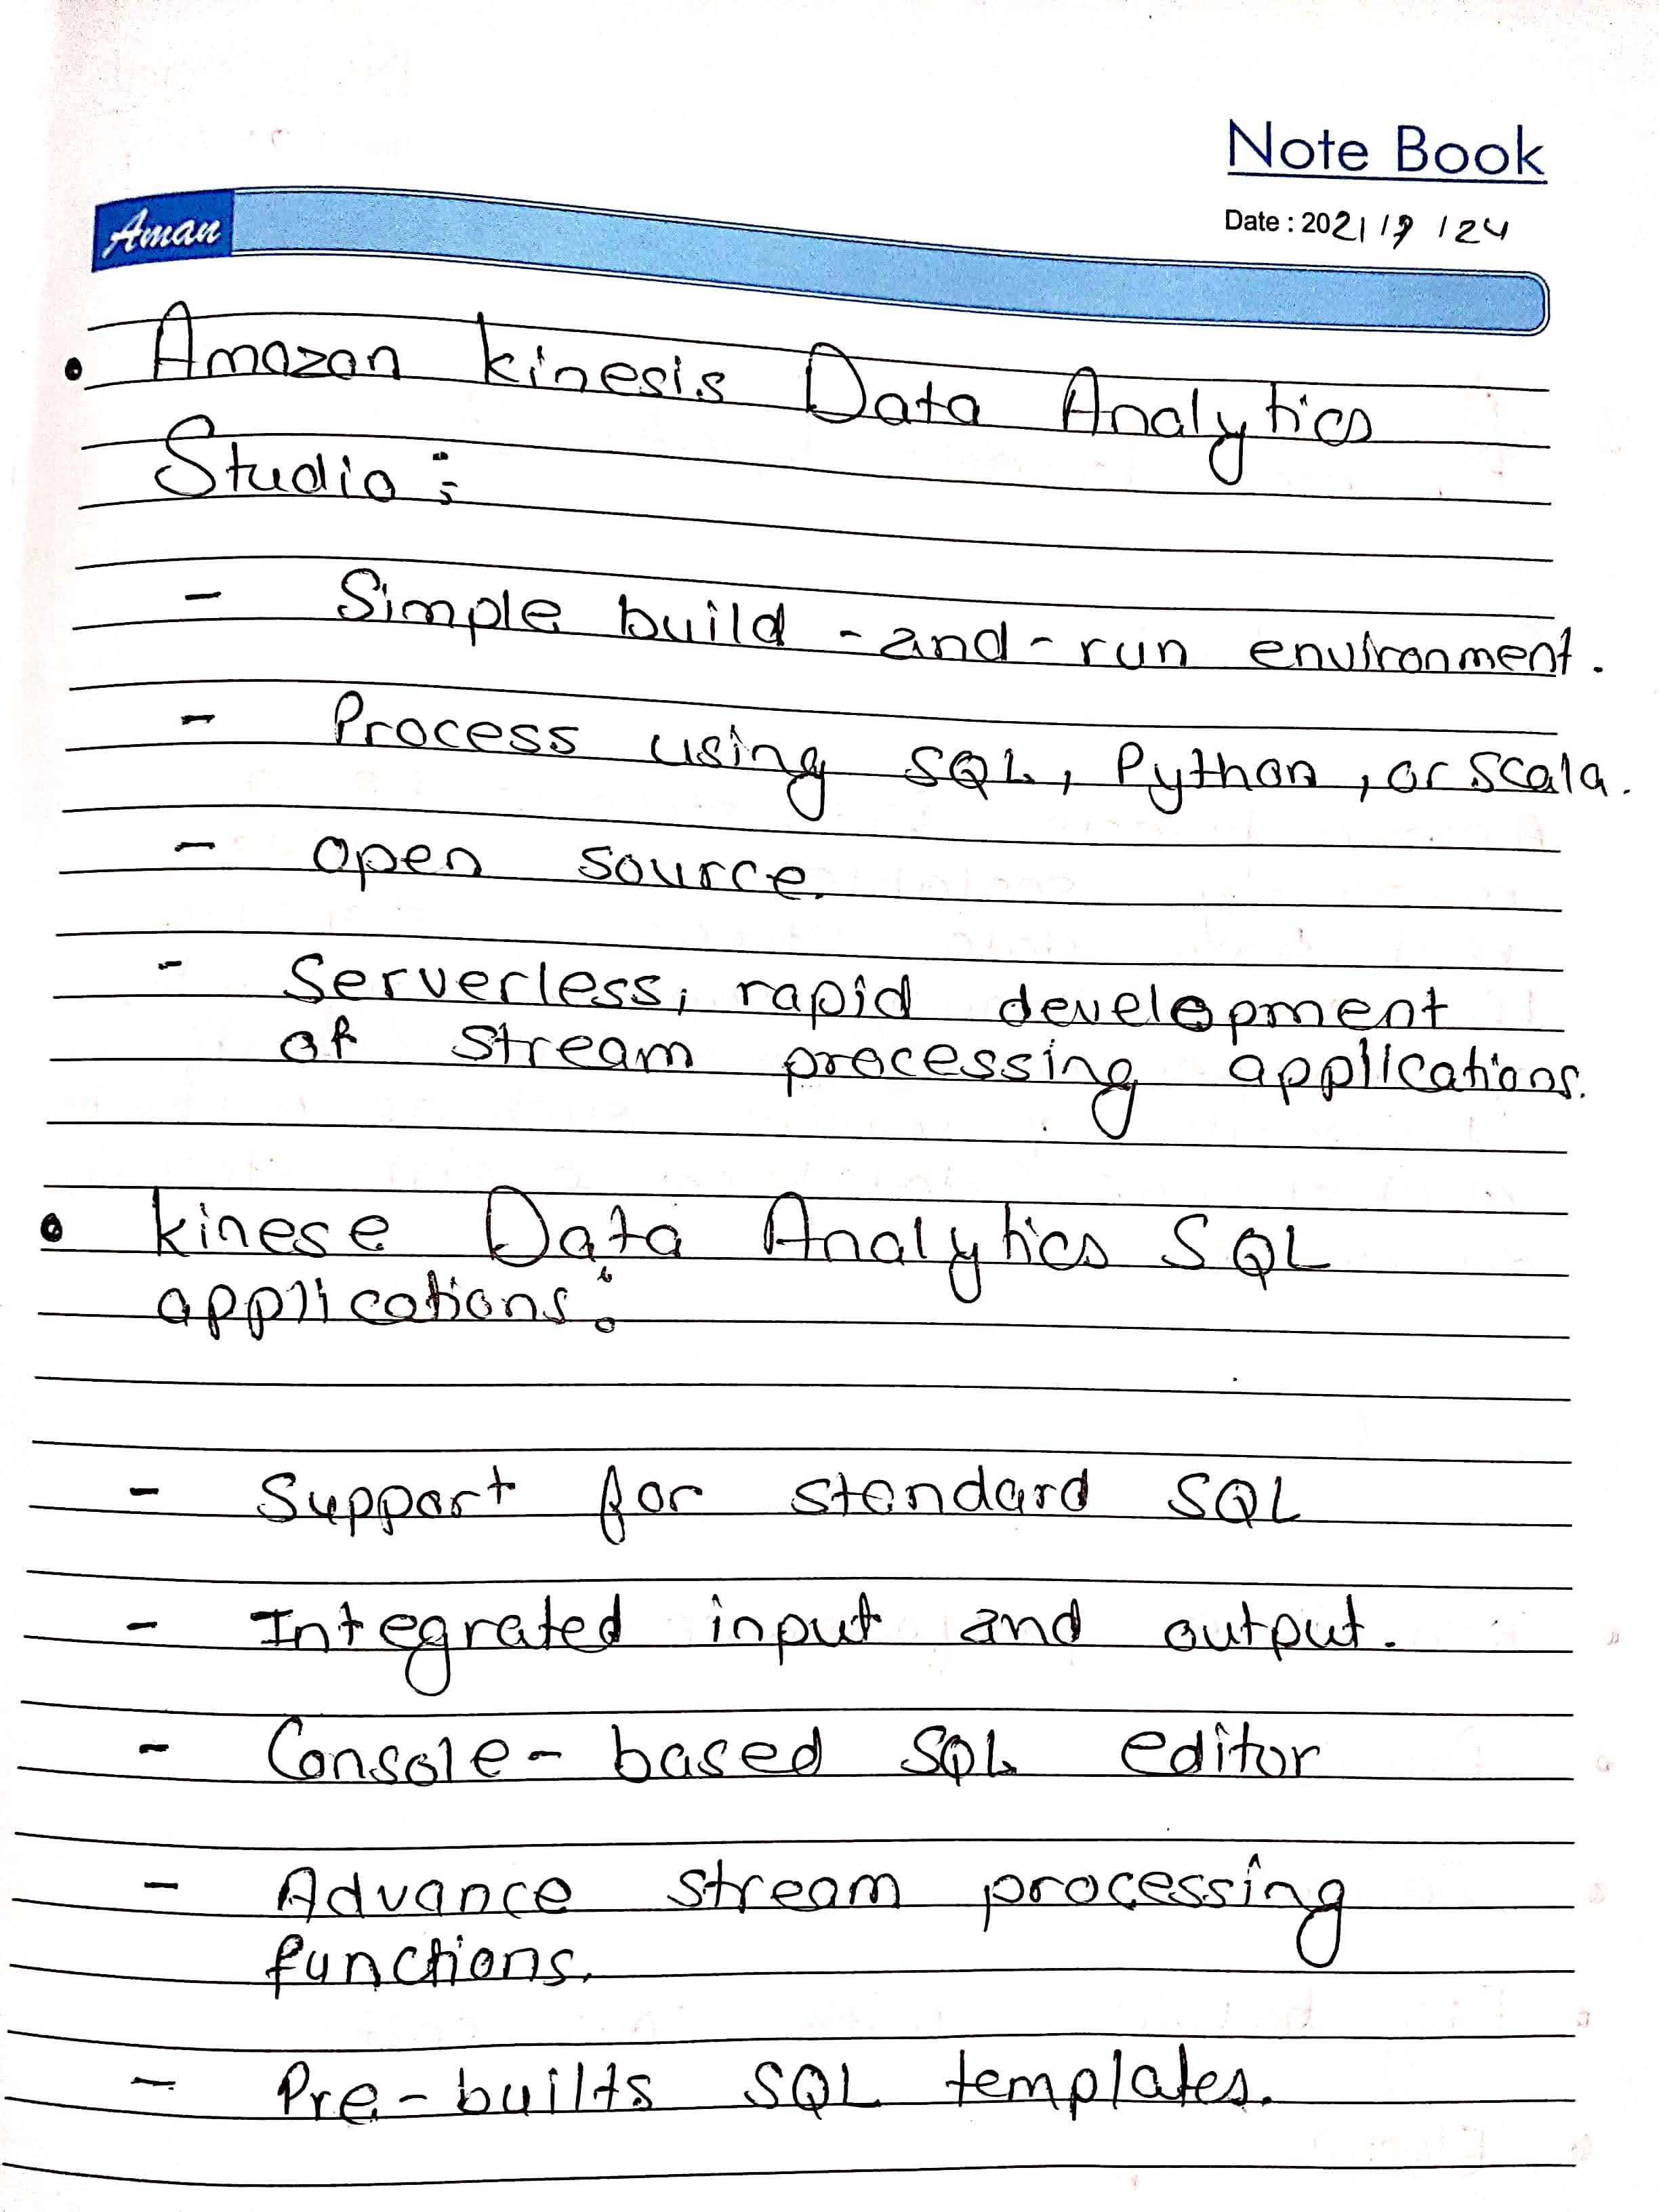 Note Book
Aman
Date : 2021/9/24
• Amazon kinesis Data Analytics
Studio :
- Simple build -and- run environment.
- Process using SQL, Python, or Scala.
- open source.
- Serverless, rapid development
of stream processing applications.
• kinese Data Analytics SQL
applications :
- Support for standard SQL
- Integrated input and output.
- Console-based SQL editor
- Advance stream processing
functions.
- Pre-builts SQL templates.